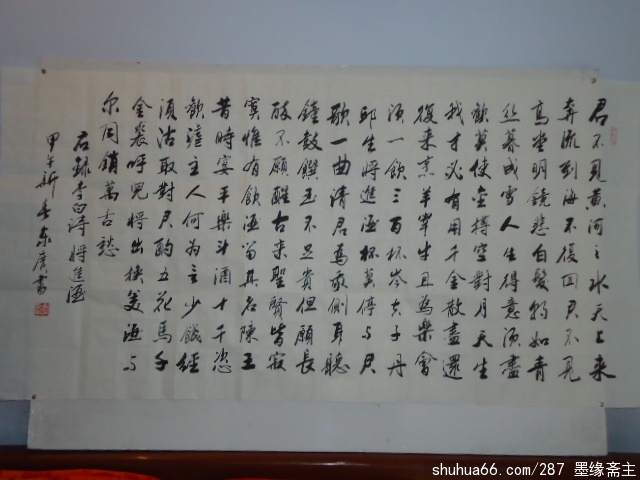 君不見黄河之水天上来
奔流到海不復回君不見
高堂明鏡悲白髮朝如青
丝暮成雪人生得意须盡
歡莫使金樽空對月天生
我才必有用千金散盡還
復来烹羊宰牛且為樂會
须一飲三百杯岑夫子丹
邱生將進酒杯莫停与君
歌一曲请君為我側耳聽
鐘鼓饌玉不足貴但願長
醉不願醒古来聖賢皆寂
寞惟有飲酒留其名陳王
昔時宴平樂斗酒十千恣
歡謔主人何為言少錢經
须沽取對君酌五花馬千
金裘呼兒將出换美酒与
尔同銷萬古愁
右録李白詩將進酒
甲午新春東書
shuhua66.com/287 墨缘斋主